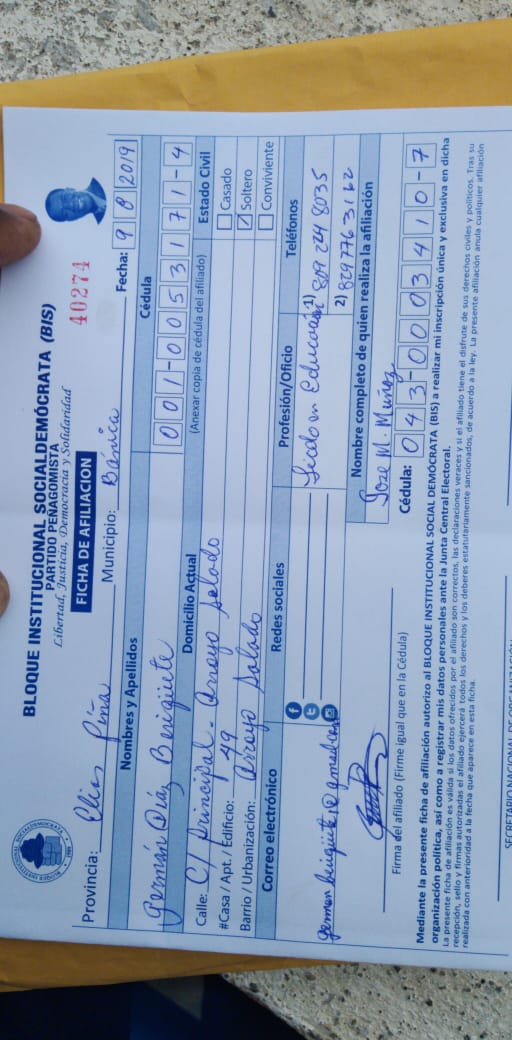 BLOQUE INSTITUCIONAL SOCIALDEMÓCRATA (BIS)
PARTIDO PEÑAGOMISTA
Libertad, Justicia, Democracia y Solidaridad
40274
FICHA DE AFILIACION
Provincia: Elias Piña Municipio: Bánica Fecha: 9 8 2019
Nombres y Apellidos Cédula
Germán Díaz Benigüete 001-0053171-4
Domicilio Actual (Anexar copia de cédula del afiliado) Estado Civil
Calle: C/ Principal - Arroyo Salado Casado
#Casa / Apt. / Edificio: 49 Soltero
Barrio / Urbanización: Arroyo Salado Conviviente
Correo electrónico Redes sociales Profesión/Oficio Teléfonos
Licdo en Educación 1) 809 224 8035
2) 829 776 3162
Nombre completo de quien realiza la afiliación
Jose M. Muñoz
Cédula: 043-0003410-7
Firma del afiliado (Firme igual que en la Cédula)
Mediante la presente ficha de afiliación autorizo al BLOQUE INSTITUCIONAL SOCIAL DEMÓCRATA (BIS) a realizar mi inscripción única y exclusiva en dicha
organización política, así como a registrar mis datos personales ante la Junta Central Electoral.
La presente ficha de afiliación es válida si los datos ofrecidos por el afiliado son correctos, las declaraciones veraces y si el afiliado tiene el disfrute de sus derechos civiles y políticos. Tras su
recepción, sello y firmas autorizadas el afiliado ejercerá todos los derechos y los deberes estatutariamente sancionados, de acuerdo a la ley. La presente afiliación anula cualquier afiliación
realizada con anterioridad a la fecha que aparece en esta ficha.
SECRETARIO NACIONAL DE ORGANIZACIÓN